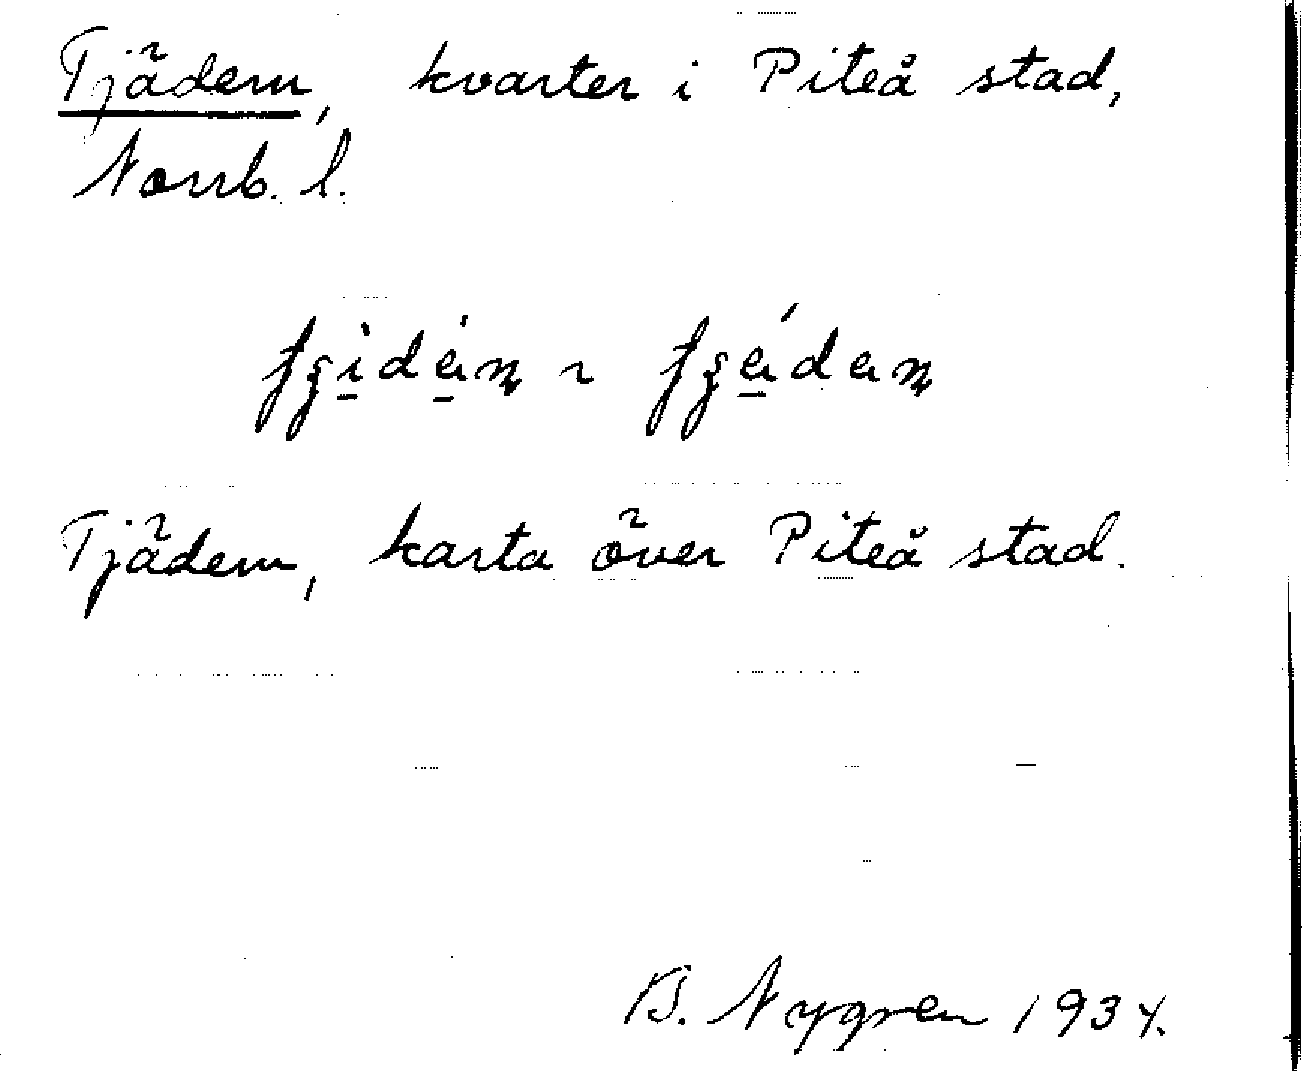 Tjädern, kvarter i Piteå stad,
Norrb. l.
Tjädern, karta över Piteå stad.
B. Nygren 1934.